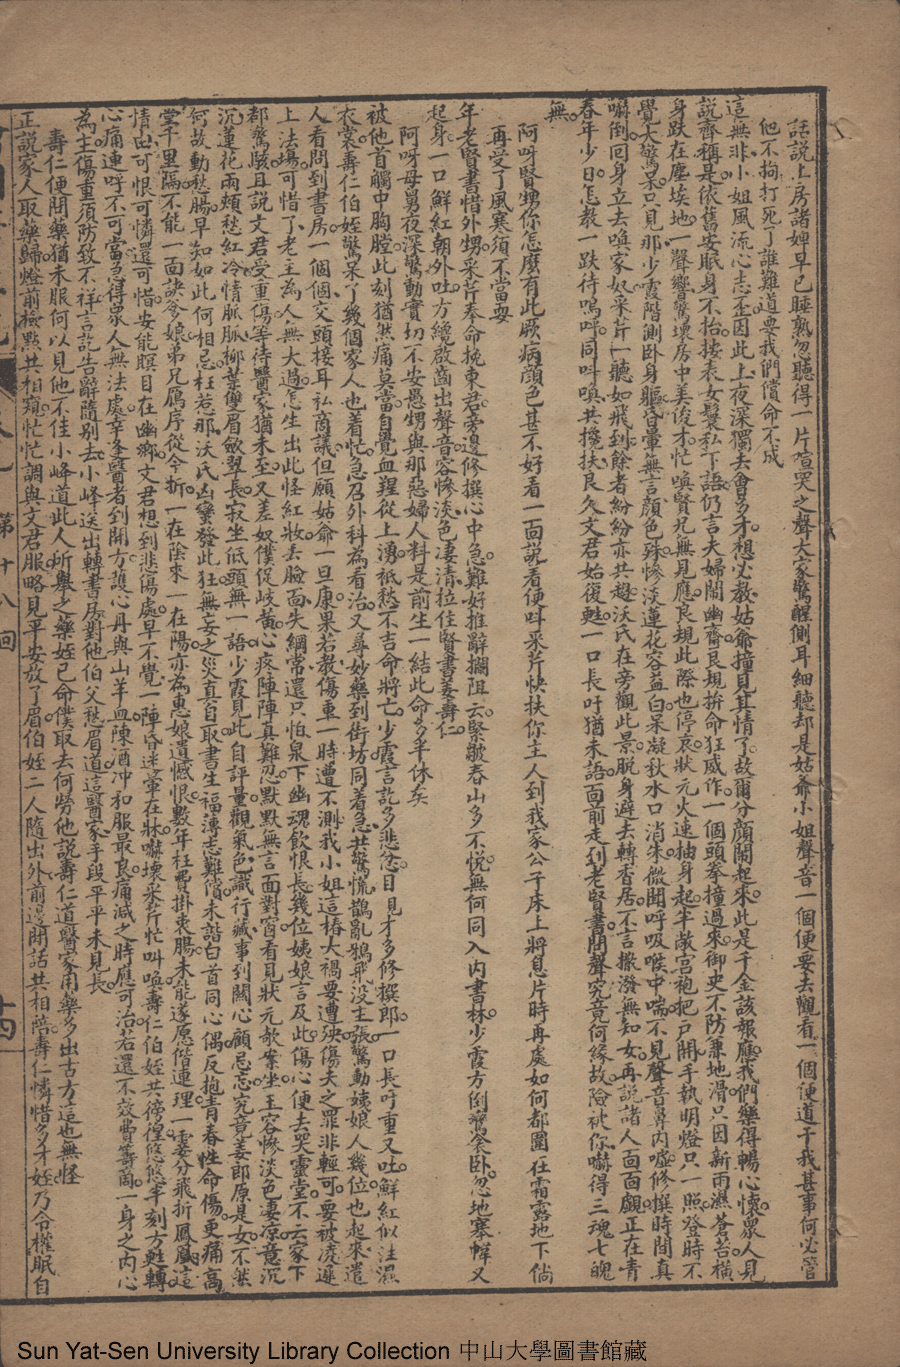 話說上房諸婢早已睡熟忽聽得一片喧哭之聲大家驚醒側耳細聽却是姑爺小姐聲音一個便要去觀看一個便道干我甚事何必管
他不拘打死了誰難道要我們償命不成
這無非小姐風流心志歪因此上夜深獨去會多才想必教姑爺撞見其情了故爾分顔鬧起來此是千金該報應我們樂得暢心懷衆人見
說齊稱是依舊安眠身不抬按表女鬟私下語仍言夫婦鬧幽齋良規拚命狂威作一個頭拳撞過來御史不防兼地滑只因新雨濕蒼苔橫
身跌在塵埃地一聲響驚壞房中美俊才忙喚賢兄無見應良規此際也停哀狀元火速抽身起半敞宮袍把戶開手執明燈只一照登時不
覺大驚呆只見那少霞階測卧身軀昏暈無言顔色殊慘淡蓮花容益白呆凝秋水口消朱微聞呼吸喉中喘不見聲音鼻內嘘修撰時間真
嚇倒回身立去喚家奴采芹一聽如飛到餘者紛紛亦共趨沃氏在旁觀此景脫身避去轉香居不言撒潑無知女再說諸人面面覷正在青
春年少日怎教一跌待嗚呼同呌喚共攙扶良久文君始復甦一口長吁猶未語面前走到老賢書聞聲究竟何緣故險被你嚇得三魂七魄
無
阿呀賢甥你怎麼有此厥病顔色甚不好看一面說着便呌采芹快扶你主人到我家公子床上將息片時再處如何都圍在霜露地下倘
再受了風寒須不當耍
年老賢書惜外甥采芹奉命挽東君旁邊修撰心中急難好推辭攔阻云緊皺春山多不悅無何同入內書林少霞方倒鴛衾卧忽地搴幃又
起身一口鮮紅朝外吐方纔啟齒出聲音容慘淡色凄清拉住賢書姜壽仁
阿呀母舅夜深驚動實切不安愚甥與那惡婦人料是前生一結此命多半休矣
被他首觸中胸膛此刻猶然痛莫當自覺血腥從上湧祗愁不吉命將亡少霞言訖多悲忿目見才多修撰郎一口長吁重又吐鮮紅似注濕
衣裳壽仁伯姪驚呆了幾個家人也着忙急召外科為看治又尋妙藥到街坊同着急共驚慌鵲亂鴉飛沒主張驚動姨娘人幾位也起來遣
人看問到書房一個個交頭接耳私商議但願姑爺一旦康果若教傷重一時遭不測我小姐這樁大禍要遭殃傷夫之罪非輕可要被凌遲
上法場可惜了老主為人無大過怎生出此怪紅妝去臉面失綱常還只怕泉下幽魂飲恨長幾位姨娘言及此傷心便去哭靈堂不云家下
都驚駭且說文君受重傷等待醫家猶未至又差奴僕促岐黃心疼陣陣真難忍默默無言面對窗看見狀元欹案坐玉容慘淡色凄凉意沉
沉蓮花兩頰愁紅冷情脈脈柳葉雙眉歛翠長寂坐低頭無一語少霞見此自評量觀氣色識行藏事到關心顧忌忘究竟姜郎原是女不然
何故動愁腸早知如此何相忌枉若那沃氏凶蠻發此狂無妄之災真自取書生福薄志難償未諧白首同心偶反抱青春性命傷更痛高
堂千里隔不能一面訣爹娘弟兄鴈序從今折一在陰來一在陽亦為惠娘遺憾恨數年枉費掛衷腸未能遂願偕連理一霎分飛折鳳凰這
情由可恨可憐還可惜安能瞑目在幽鄉文君想到悲傷處早不覺一陣昏迷暈在牀嚇壞采芹忙叫喚壽仁伯姪共徬徨悠悠半刻方甦轉
心痛連呼不可當急得衆人無法處幸逢醫者到開方護心丹與山羊血陳酒冲和服最良痛減之時應可治若還不效費籌商一身之內心
為主傷重須防致不祥言訖告辭隨别去小峰送出轉書房對他伯父愁眉道這醫家手段平平未見長
壽仁便問藥猶未服何以見他不佳小峰道此人所舉之藥姪已命僕取去何勞他說壽仁道醫家用藥多出古方這也無怪
正說家人取藥歸燈前檢點共相窺忙忙調與文君服略見平安放了眉伯姪二人隨出外前邊閒話共相陪壽仁憐惜多才姪乃令權眠自
第十八回
十四
Sun Yat-Sen University Library Collection 中山大學圖書館藏